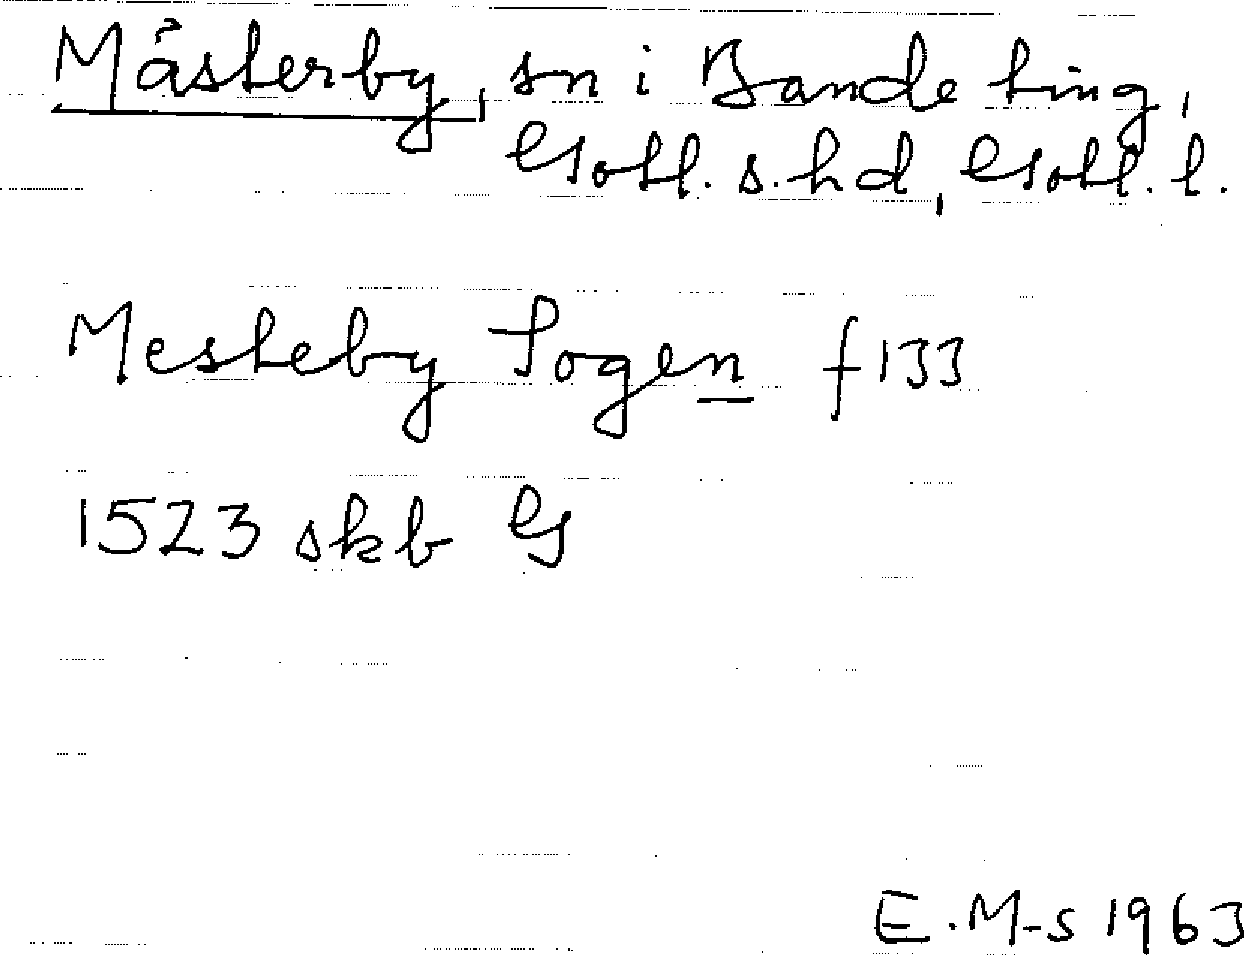 Mästerby, sn i Bande ting,
Gotl. s. hd, Gotl. l.
Mesteby Sogen f 133
1523 skb G
E. M-s 1963